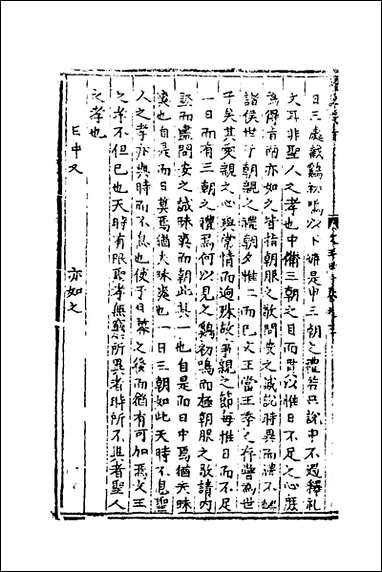 日三處截鷄初鳴以下講是申三朝之禮若只說中不過釋礼
文耳非聖人之孝也中備三朝之目而
為得有兩亦如之皆指朝服之敬問安之誠說時異而禮不
諸侯世子朝親之禮朝夕惟二而已文王當王季之存嘗為世
子矣其愛親之心與常情而過殊故事親之節每惟日而不足
一日而有三朝之禮焉何以見之鷄初鳴而極朝服之敬請內
豎而盡問安之誠昧爽而朝此其一也自是而日中焉猶夫昧
爽也自是而日莫焉猶夫昧爽也一日三朝如此天時不息聖
人之孝亦與時而不息也使于日暮之後而猶有可加焉文王
之孝不但已也天時有限聖孝無窮所異者時所不異者聖人
之孝也
日中又 亦如之